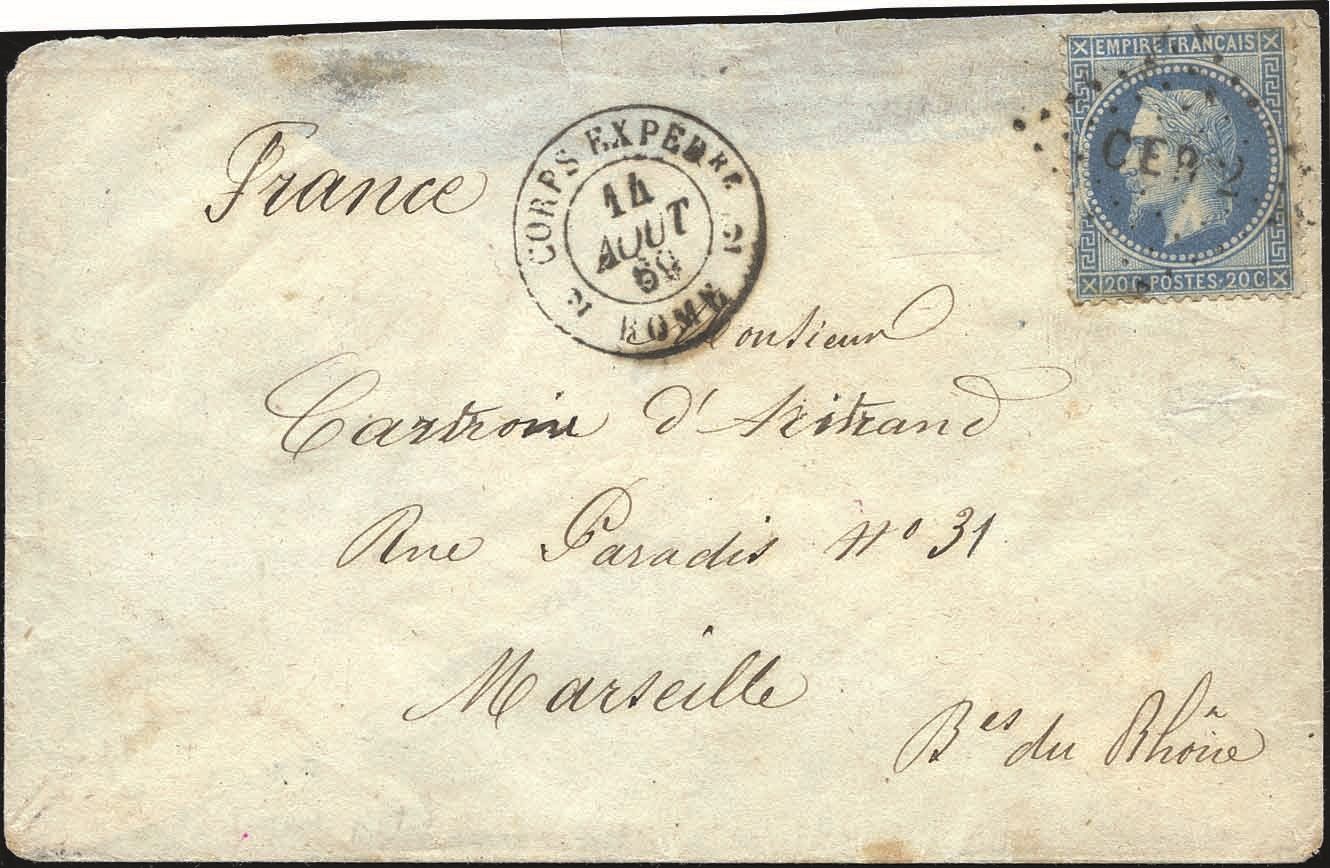 EMPIRE FRANCAIS
CER 2
20 C·POSTES·20 C
France
CORPS EXPEDRE 2
14
AOUT
69
2 ROME
Monsieur
d'
Rue Paradis No 31
Marseille
Bes du Rhône